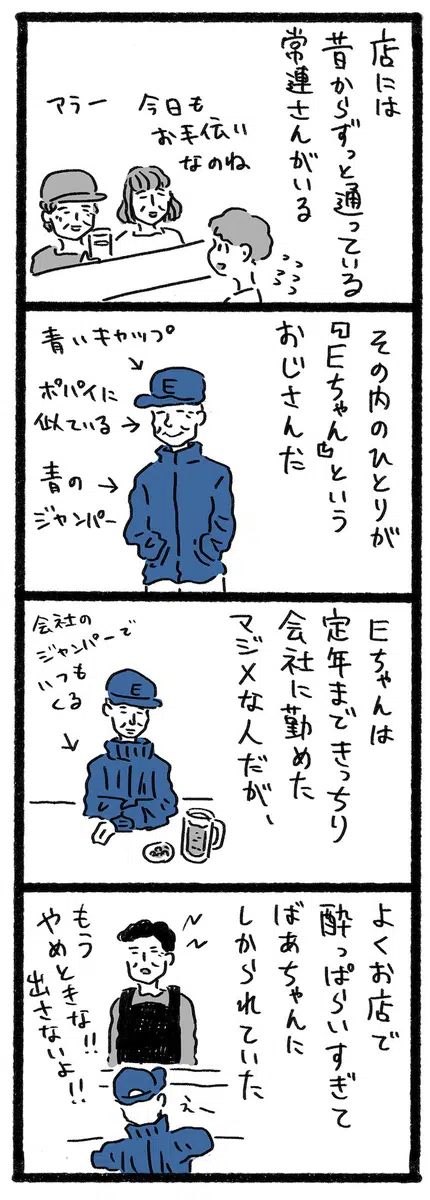 店には
昔からずっと通っている
常連さんがいる
今日も
お手伝い
なのね
アラー
その内のひとりが
『Eちゃん』という
おじさんだ
青いキャップ
ポパイに
似ている
青の
ジャンパー
E
Eちゃんは
定年まできっちり
会社に勤めた
マジメな人だが、
会社の
ジャンパーで
いつも
くる
E
よくお店で
酔っぱらいすぎて
ばあちゃんに
しかられていた
もう
やめときな!!
出さないよ!!
えー